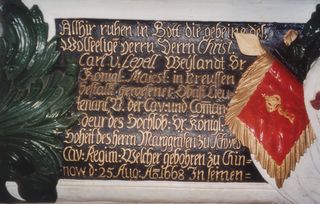 Allhir ruhen in Gott die gebeine des
Wolseelige Herrn Herrn Christ.
Carl v. Lepell Weyland Sr
Königl. Majest. in Preussen
bestalt. gewesener Obrist Lieu
tenant V. der Cav: und Coman
deur des Hochlöb. Sr Königl.
Hoheit des Herrn Marggrafen zu Schwed
Cav: Regim: Welcher gebohren zu Chin
now d. 25 Aug. Ao. 1668 In seinen